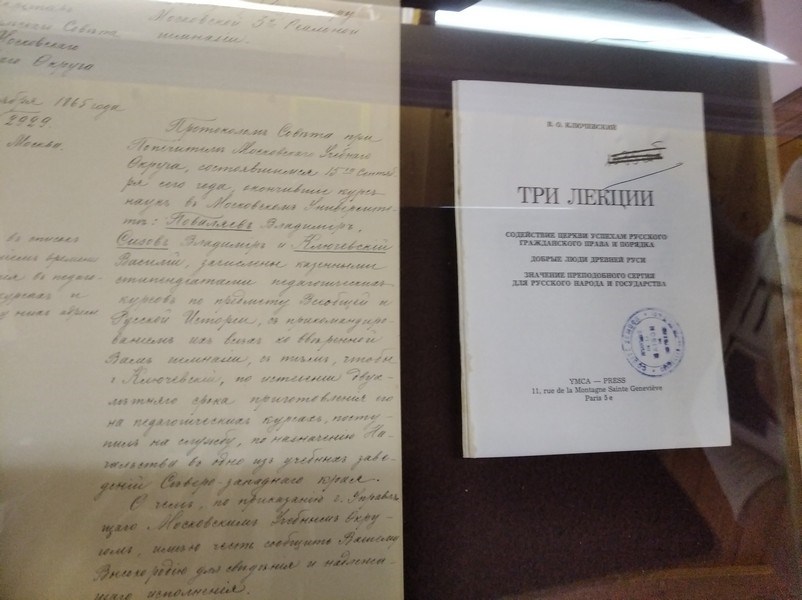 Московской 5й Реальной
гимназии.
Совета
Московского
Округа
1865 года
2929.
Москва.
Протоколомъ Совѣта при
Попечителѣ Московскаго Учебнаго
Округа, состоявшимся 15го Сентяб
ря сего года, окончившіе курсъ
наукъ въ Московскомъ Университе-
тѣ: Поваляевъ Владиміръ,
Сизовъ Владиміръ и Ключевскій
Василій, зачислены казенными
стипендіатами педагогическихъ
курсовъ по предмету Всеобщей и
Русской Исторіи, съ прикомандиро-
ваніемъ ихъ всѣхъ ко ввѣренной
Вамъ гимназіи, съ тѣмъ, чтобы
г. Ключевскій, по истеченіи двух-
лѣтняго срока приготовленія его
на педагогическихъ курсахъ, посту-
пилъ на службу, по назначенію На-
чальства въ одно изъ учебныхъ заве-
деній Сѣверо-западнаго края.
О чемъ, по приказанію г. Управля
щаго Московскимъ Учебнымъ Окру-
гомъ, имѣю честь сообщить Вашему
Высокородію для свѣдѣнія и надлежа-
щаго исполненія.
В. О. КЛЮЧЕВСКИЙ
ТРИ ЛЕКЦИИ
СОДЕЙСТВИЕ ЦЕРКВИ УСПЕХАМ РУССКОГО
ГРАЖДАНСКОГО ПРАВА И ПОРЯДКА
ДОБРЫЕ ЛЮДИ ДРЕВНЕЙ РУСИ
ЗНАЧЕНИЕ ПРЕПОДОБНОГО СЕРГИЯ
ДЛЯ РУССКОГО НАРОДА И ГОСУДАРСТВА
YMCA — PRESS
11, rue de la Montagne Sainte Geneviève
Paris 5e